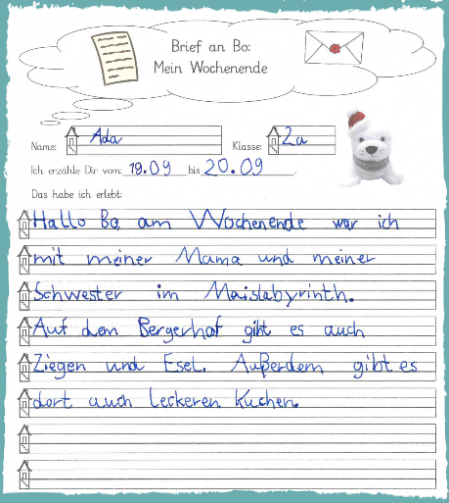 Brief an Bo:
Mein Wochenende
Name: Ada Klasse: 2a
Ich erzähle Dir vom: 19.09 bis 20.09.
Das habe ich erlebt:
Hallo Bo, am Wochenende war ich
mit meiner Mama und meiner
Schwester im Maislabyrinth.
Auf dem Bergerhof gibt es auch
Ziegen und Esel. Außerdem gibt es
dort auch leckeren Kuchen.